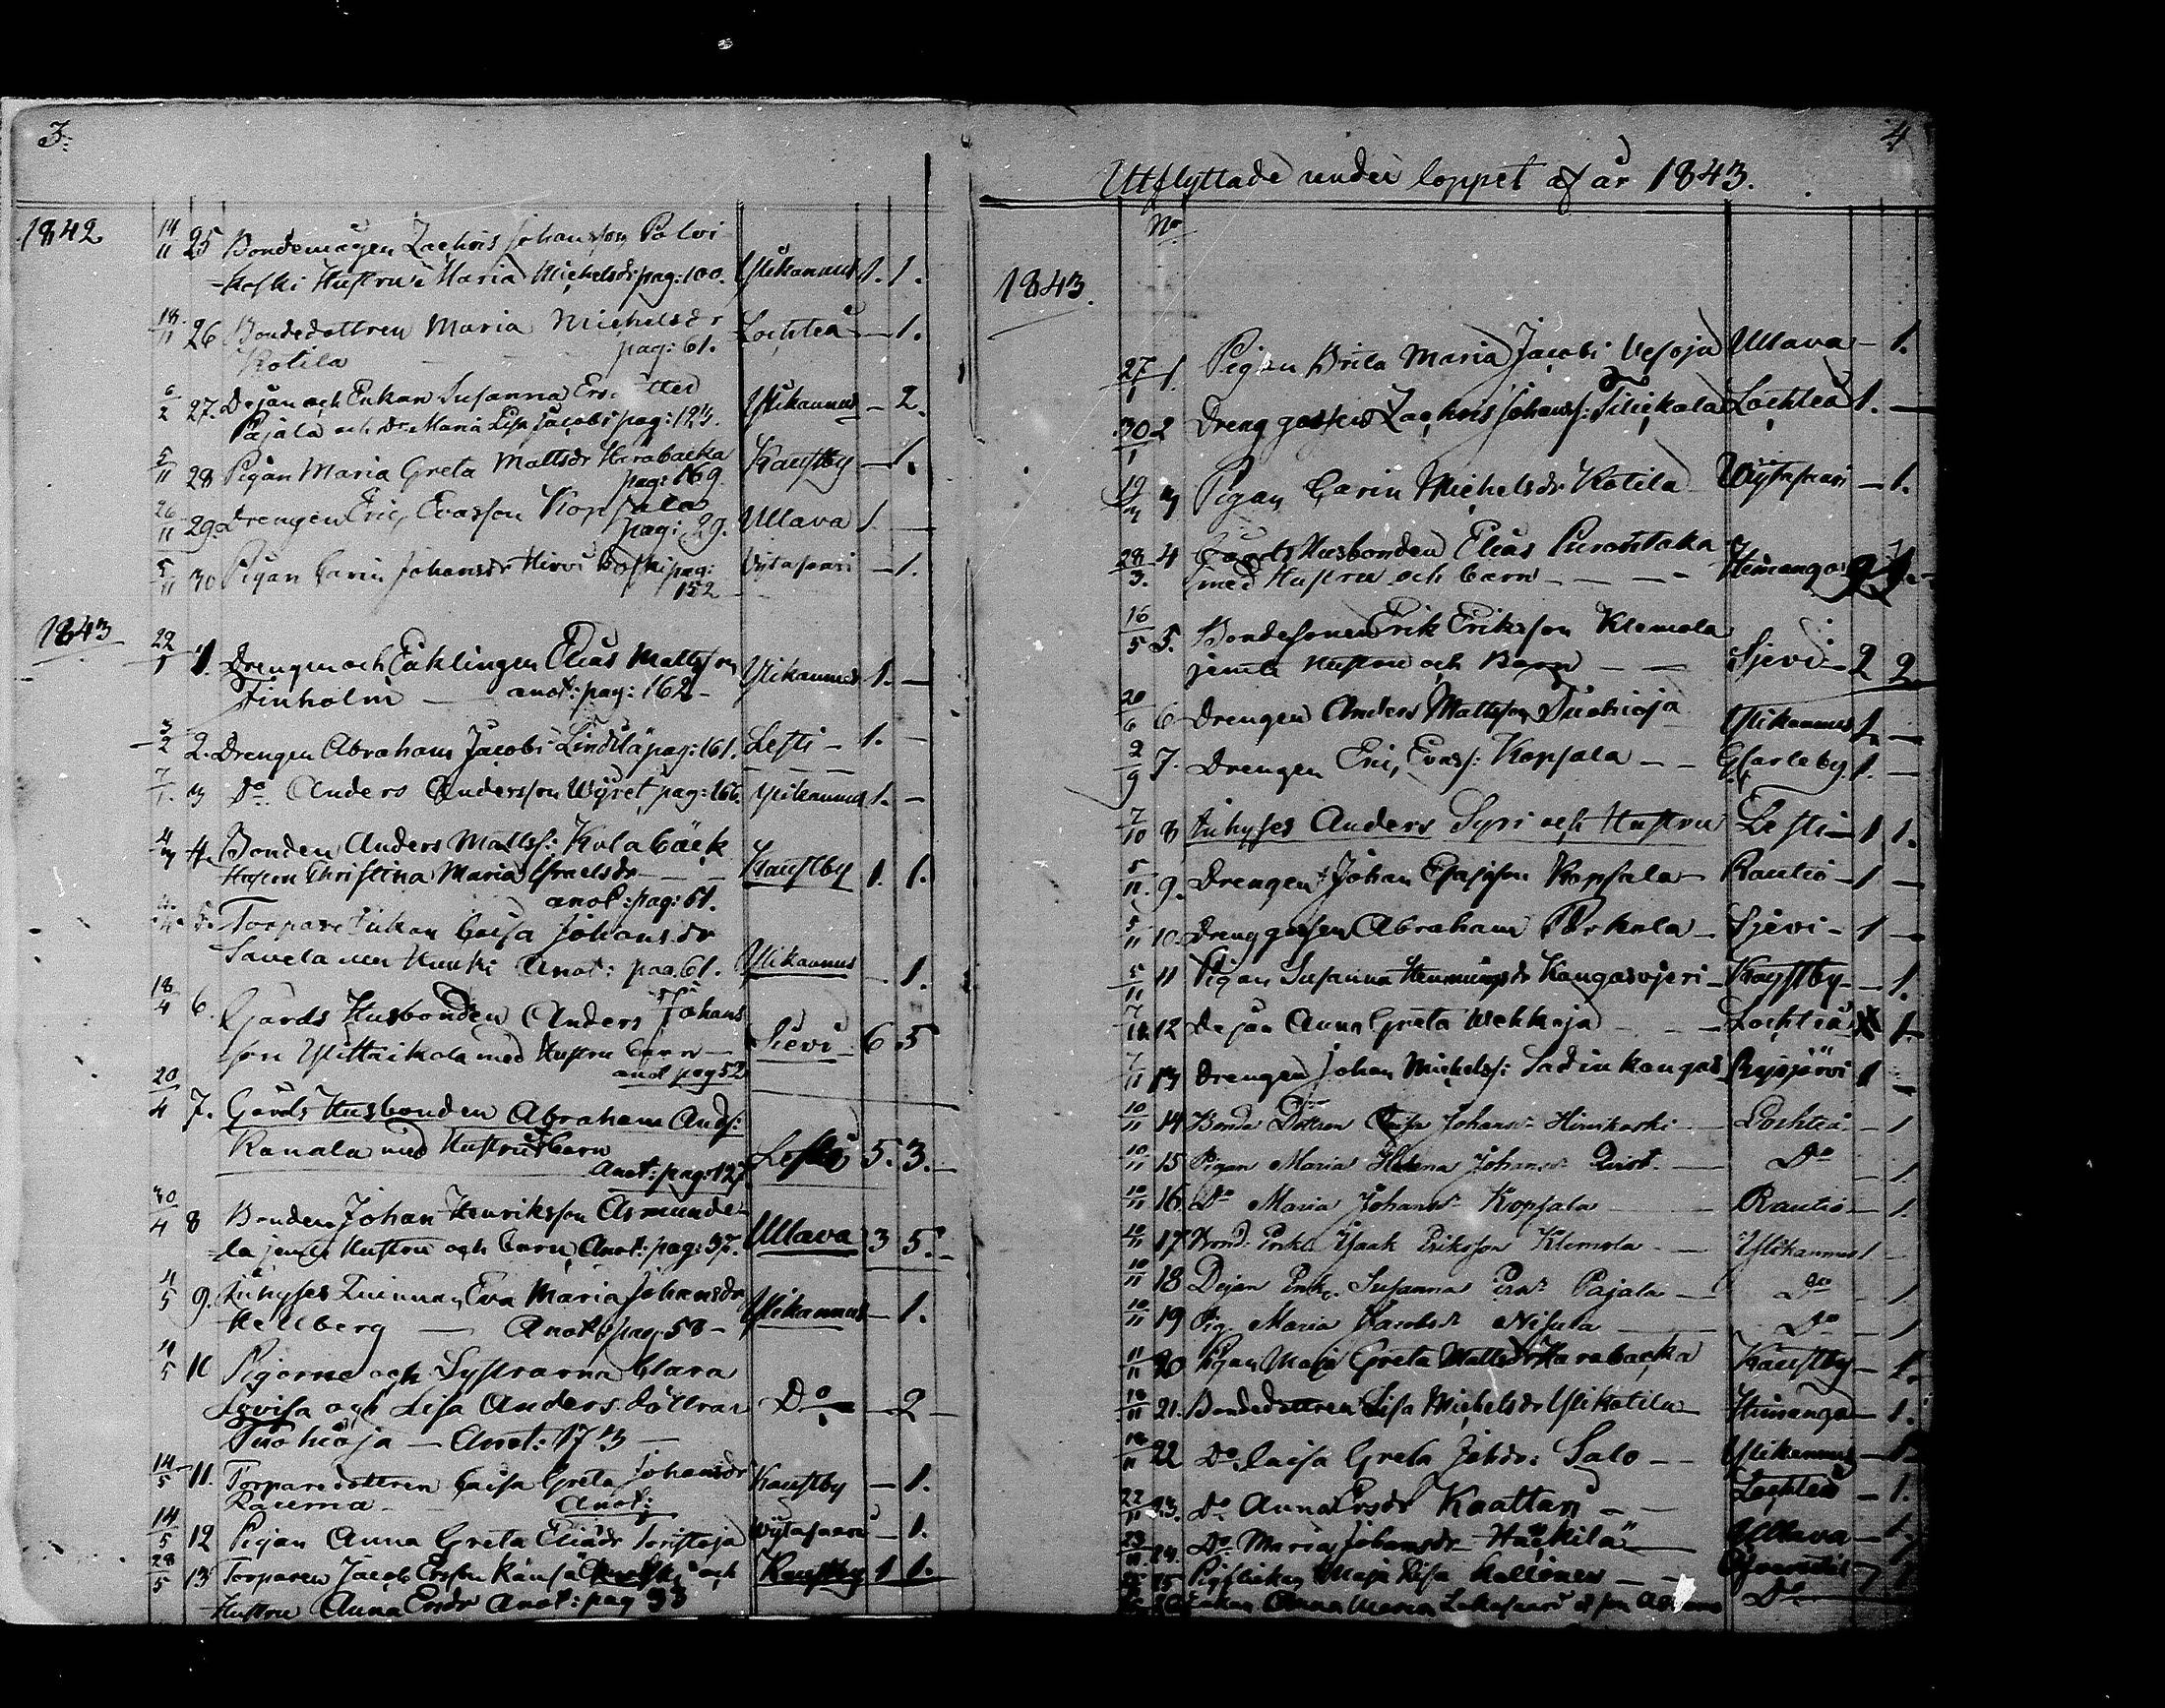 3.
1842
14/11 25 Bondemågen Zachris Johansson Palvi
-koski Hustru Maria Michelsdr pag: 100. Ylikannus 1. 1.
18/11 26 Bondedottren Maria Michelsdr Lochteå — 1.
Kotila pag: 61.
6/2 27. Dejan och Enkan Susanna Ersdotter Ylikannus — 2.
Pajala och Dr Maria Lisa Jacobs pag: 124.
5/11 28 Pigan Maria Greta Mattsdr Harabacka Kaustby — 1.
pag: 169.
26/11 29. Drengen Eric Evasson Kopsala Ullava 1. —
pag: 29.
5/11 30 Pigan Carin Johansdr Hirvi Koski pag: Wytasaari — 1.
152
1843
22/1 1. Drengen och Enklingen Elias Mattsson Ylikannus 1. —
Finholm — anot: pag: 162 —
3/2 2. Drengen Abraham Jacobs Lindilä pag: 161. Lesti — 1. —
7/1. 3 Do Anders Andersson Wyret pag: 166. Ylikannus 1. —
4/3 4. Bonden Anders Matts: Kolabäck
Hustru Christina Maria Israelsdr — Kaustby 1. 1.
anot: pag: 61.
4/4 5. Torpare Enkan Caisa Johansdr
Savela Anot: pag. 61. Ylikannus — 1.
18/4 6. Gårds Husbonden Anders Johans
son med Hustru barn — Sievi 6 5
anot pag 52
20/4 7. Gårds Husbonden Abraham Ands:
Ranala med Hustru barn Lesti 5. 3.
Anot: pag: 127
30/4 8 Bonden Johan Henriksson Asmunde-
la jemte Hustru och barn, Anot: pag: 37. Ullava 3 5.
4/5 9. Inhyses Qvinnan Eva Maria Johansdr Ylikannus — 1.
Hellberg — Anot: pag: 58 —
4/5 10 Pigorne och Systrarna Clara
Lovisa och Lisa Anders döttrar Do — 2 —
Tuohioja — Anot: 173 —
14/5 11. Torparedottren Caisa Greta Johansdr Kaustby — 1.
Rauma Anot:
14/5 12 Pigan Anna Greta Eliædr Toristoja Wytasaari — 1.
28/5 13 Torparen Jacob Ersson Känsä och Kaustby 1 1.
Hustru Anna Ersdr Anot: pag 33
4
Utflyttade under loppet af år 1843.
No
1843.
27/1 1. Pigan Brita Maria Jacobs Vesoja Ullava — 1.
30/1 2 Drenggossen Zachris Johanss: Tilickala Lochteå 1. —
19/3 3 Pigan Carin Michelsdr Kotila Wytasaari — 1.
28/3. 4 Gårds Husbonden Elias Purontaka
med Hustru och barn — — — Himanga
16/5 5. Bondesonen Erik Eriksson Klemola
jemte Hustru och Barn — — Sjevi — 2 2
20/6 6 Drengen Anders Mattsson Tuohioja Ylikannus 1. —
2/9 7. Drengen Eric Evass: Kopsala — — GCarleby 1. —
7/10 8 Inhyses Anders Syri och Hustru Lesti — 1 1.
5/11. 9. Drengen Johan Esaisson Kopsala Rautio — 1 —
5/11 10. Drenggossen Abraham Pirkola — Sjevi — 1 —
5/11 11 Pigan Susanna Hemmingsdr Kangasvjeri — Kaustby — 1.
7/11. 12 Dejan Anna Greta Wehkoja — — — Lochteå 1.
7/11 13 Drengen Johan Michelss: Sadinkangas Pyhäjärvi 1 —
10/11 14 Bonde Dottren Caisa Johansdr Hirvikoski — Lochteå — 1
10/11 15 Pigan Maria Helena Johansdr Qvist. — Do — 1
10/11 16. Do Maria Johansdr Kopsala — Rautio — 1.
10/11 17 Bond. Enkl. Isaak Eriksson Klemola — — Ylikannus 1 —
10/11 18 Dejan Enk. Susanna Ersdr Pajala — Do — 1
10/11 19 Pig. Maria Jacobsdr Nisula — Do — 1
11/11 20 Pigan Maja Greta Mattsdr Harabacka Kaustby — 1.
18/11 21. Bondedottren Lisa Michelsdr Ylikotila — Himanga — 1.
18/11 22 Do Caisa Greta Johdr: Salo — — Ylikannus — 1.
22/11 23. Do Anna Ersdr Kaattari — — Lochteå — 1.
23/11 24. Do Maria Johansdr Hackila — Ullava — 1.
25 Pigflickan Maja Lisa Kallinen — — 1
Enkan Anna Maria Do